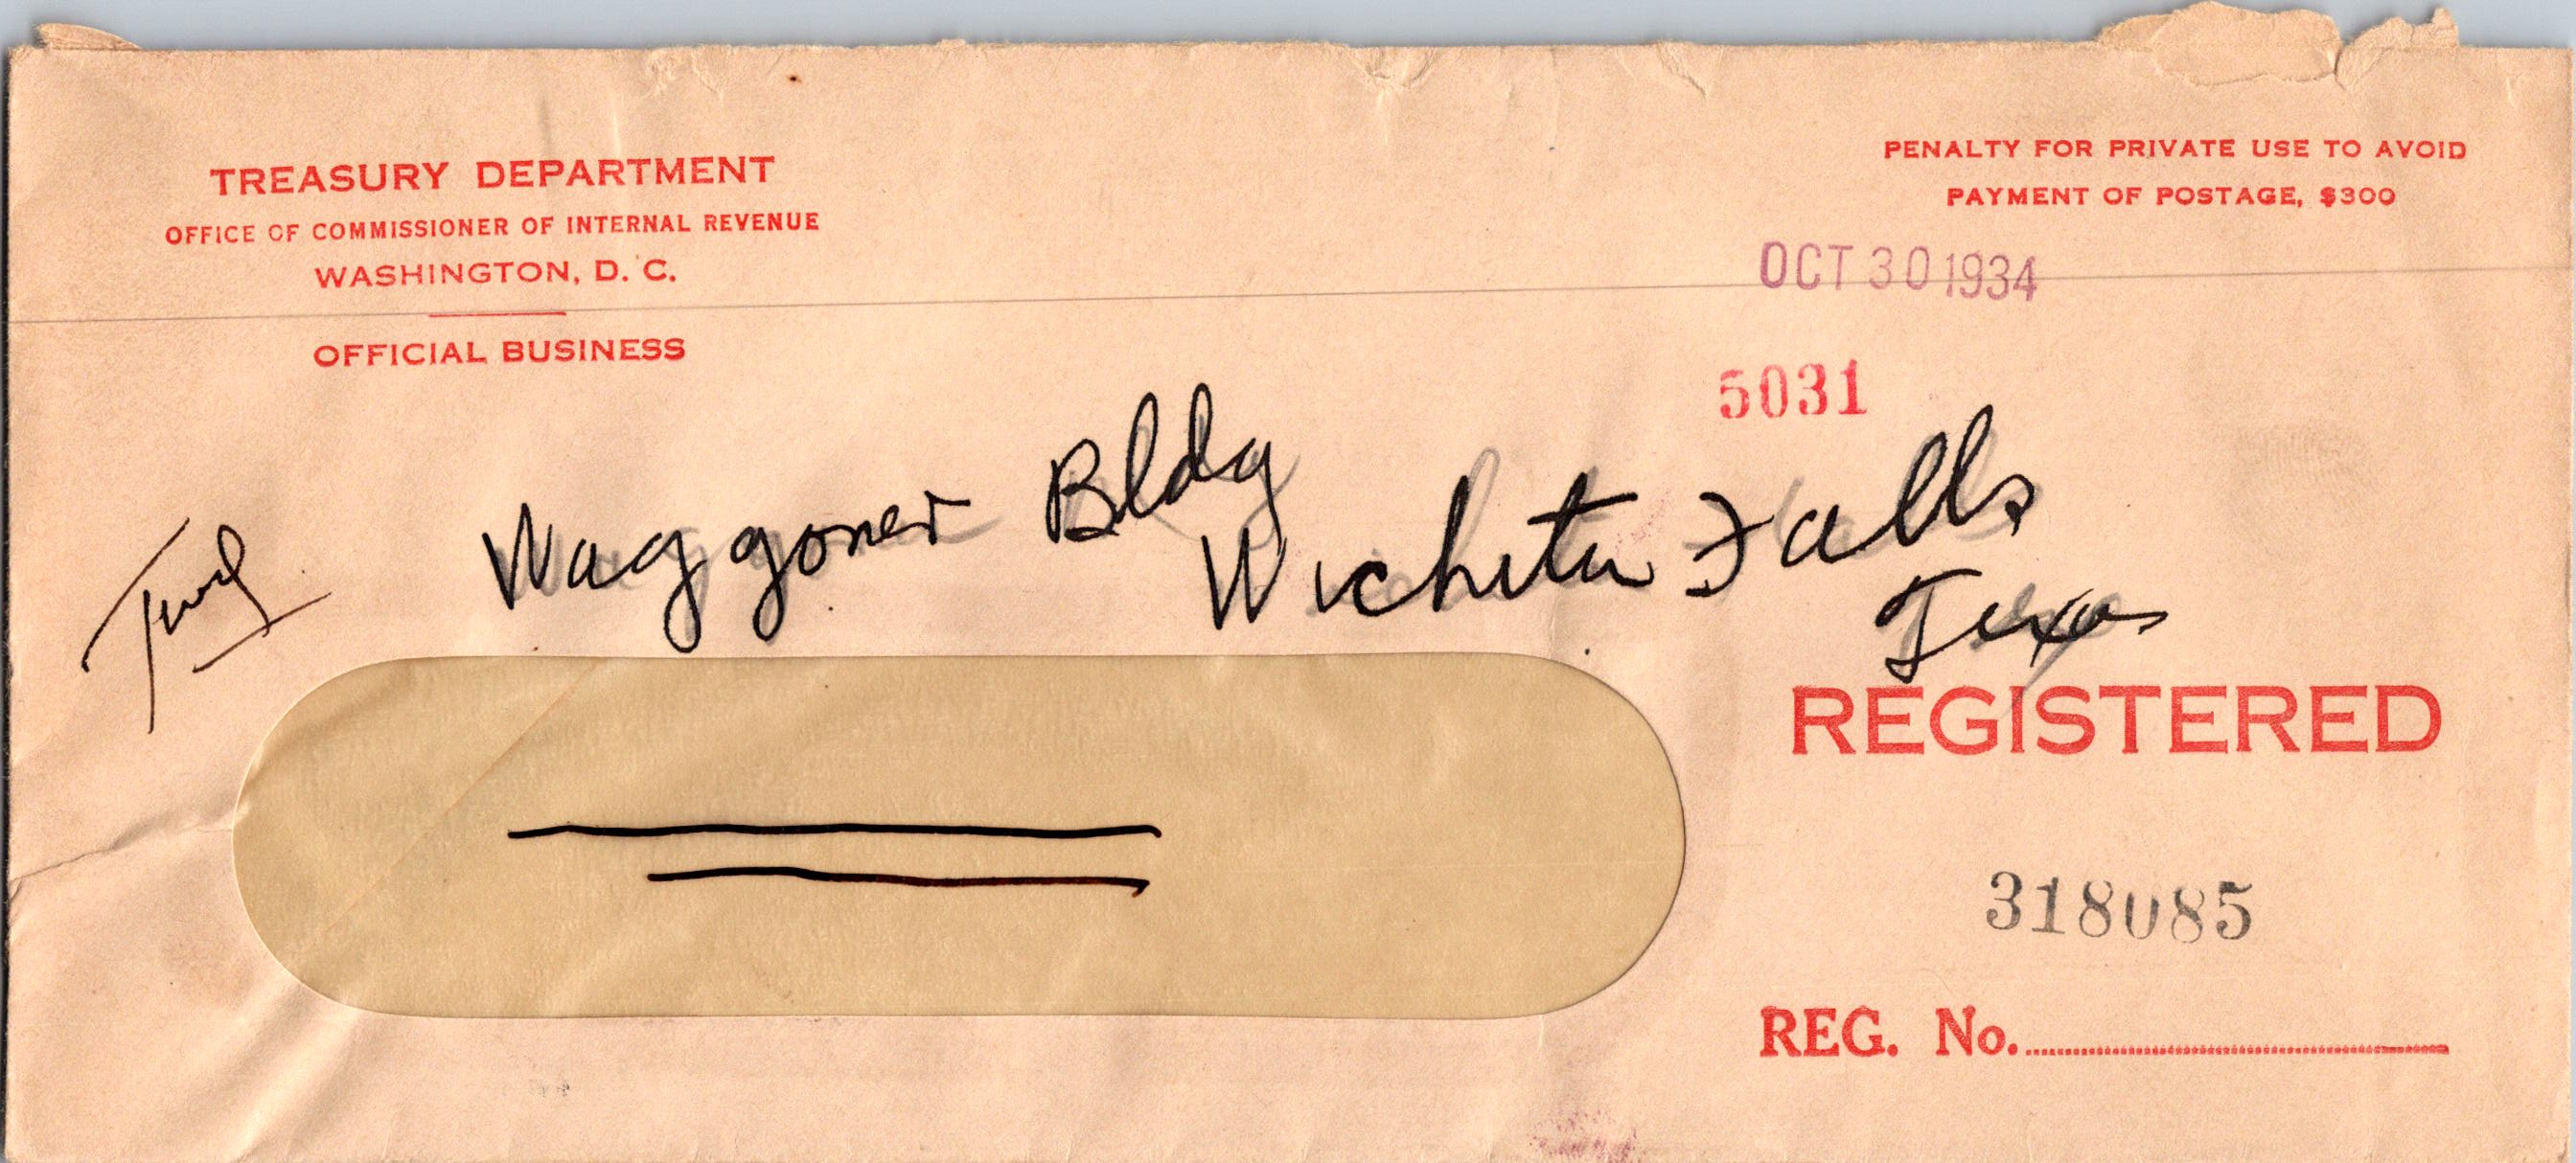 TREASURY DEPARTMENT
OFFICE OF COMMISSIONER OF INTERNAL REVENUE
WASHINGTON, D. C.
OFFICIAL BUSINESS
PENALTY FOR PRIVATE USE TO AVOID
PAYMENT OF POSTAGE, $300
OCT 30 1934
5031
Waggoner Bldg
Wichita Falls
Texas
REGISTERED
318085
REG. No.